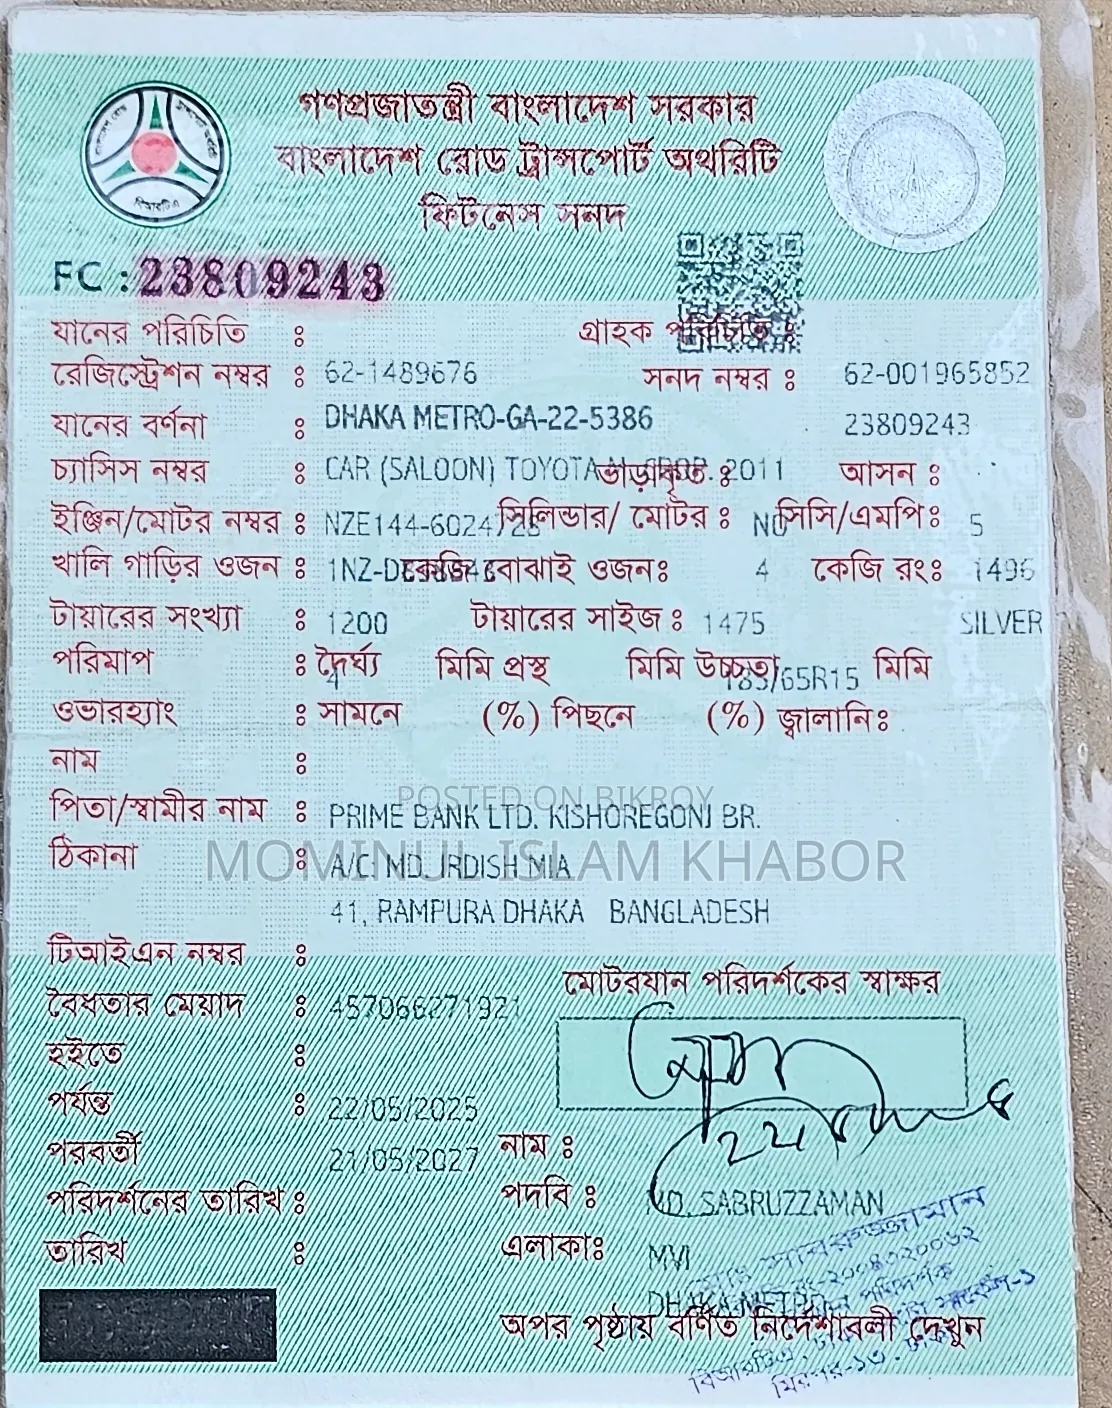 গণপ্রজাতন্ত্রী বাংলাদেশ সরকার
বাংলাদেশ রোড ট্রান্সপোর্ট অথরিটি
ফিটনেস সনদ
FC : 23809243
যানের পরিচিতি : গ্রাহক পরিচিতি :
রেজিস্ট্রেশন নম্বর : 62-1489676 সনদ নম্বর : 62-001965852
যানের বর্ণনা : DHAKA METRO-GA-22-5386 23809243
চ্যাসিস নম্বর : CAR (SALOON) TOYOTA ভাড়াকৃত : 2011 আসন :
ইঞ্জিন/মোটর নম্বর : NZE144-6024 সিলিন্ডার/ মোটর : NO সিসি/এমপি: 5
খালি গাড়ির ওজন : কেজি বোঝাই ওজন: 4 কেজি রং: 1496
টায়ারের সংখ্যা : 1200 টায়ারের সাইজ : 1475 SILVER
পরিমাপ : দৈর্ঘ্য 4 মিমি প্রস্থ মিমি উচ্চতা 185/65R15 মিমি
ওভারহ্যাং : সামনে (%) পিছনে (%) জ্বালানি:
নাম :
POSTED ON BIKROY
পিতা/স্বামীর নাম : PRIME BANK LTD. KISHOREGONJ BR.
ঠিকানা : A/C: MD. IRDISH MIA
MOMINUL ISLAM KHABOR
41, RAMPURA DHAKA BANGLADESH
টিআইএন নম্বর :
মোটরযান পরিদর্শকের স্বাক্ষর
বৈধতার মেয়াদ : 457066271921
হইতে :
পর্যন্ত : 22/05/2025
পরবর্তী 21/05/2027 নাম :
পরিদর্শনের তারিখ : পদবি : MD. SABRUZZAMAN
তারিখ : এলাকা: MVI
DHAKA METRO
অপর পৃষ্ঠায় বর্ণিত নির্দেশাবলী দেখুন
মিরপুর-১৩